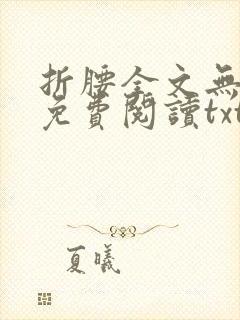 折腰全文無
免費閱讀txt
夏曦